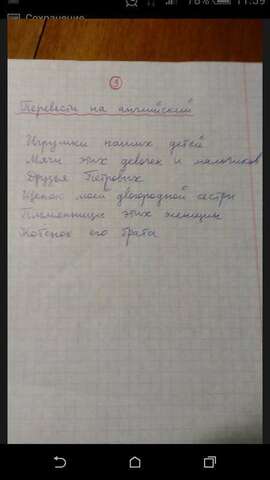 76% 11:59
Сохранение
3
Перевести на английский
Игрушки наших детей
Мячи этих девочек и мальчиков
Друзья Петровых
Щенок моей двоюродной сестры
Племянницы этих женщин
Котёнок его брата